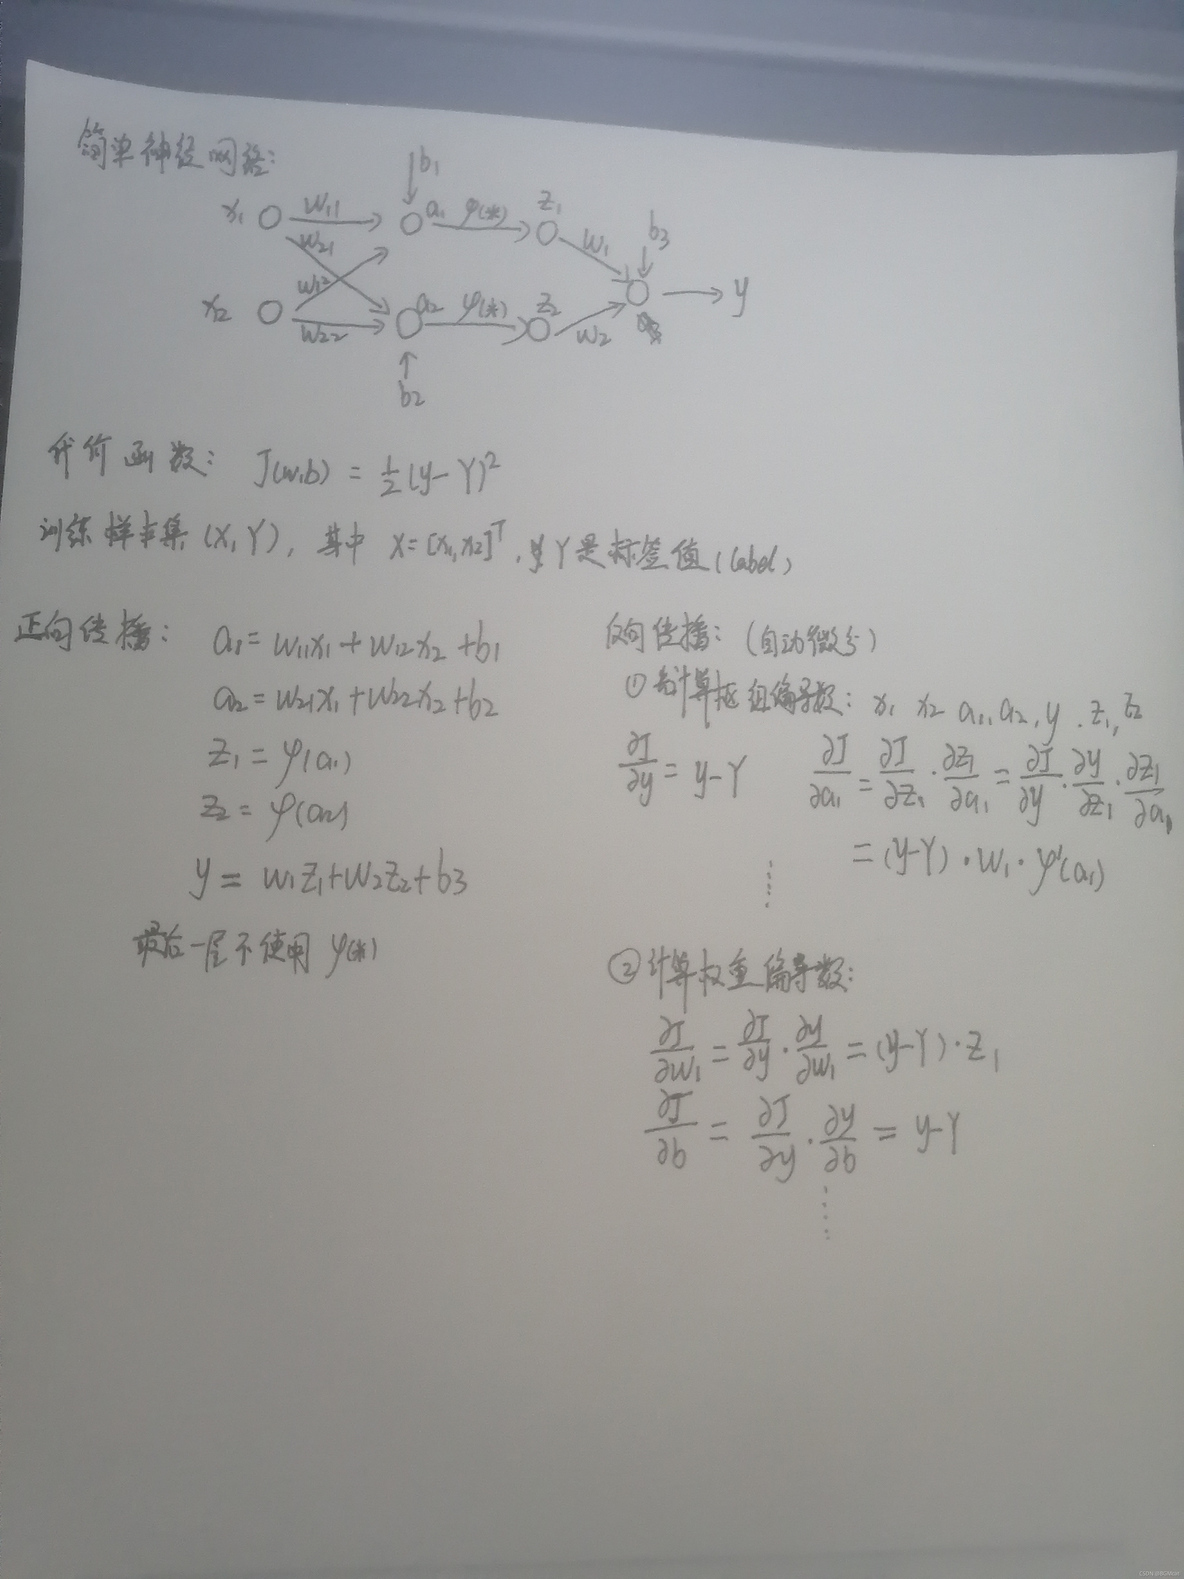 简单神经网络:
b₁
x₁ w₁₁ a₁ φ(*) z₁
w₂₁ w₁ b₃
w₁₂ y
x₂ a₂ φ(*) z₂
w₂₂ w₂
b₂
代价函数: J(w,b) = 1/2 (y-Y)²
训练样本集 (X,Y), 其中 X=[x₁,x₂]ᵀ, Y是标签值(label)
正向传播: a₁=w₁₁x₁+w₁₂x₂+b₁
a₂=w₂₁x₁+w₂₂x₂+b₂
z₁=φ(a₁)
z₂=φ(a₂)
y=w₁z₁+w₂z₂+b₃
最后一层不使用φ(*)
反向传播: (自动微分)
① 计算 偏导数: x₁ x₂ a₁,a₂,y.z₁,z₂
∂J/∂y = y-Y
∂J/∂a₁ = ∂J/∂z₁ · ∂z₁/∂a₁ = ∂J/∂y · ∂y/∂z₁ · ∂z₁/∂a₁
= (y-Y)·w₁·φ'(a₁)
② 计算权重偏导数:
∂J/∂w₁ = ∂J/∂y · ∂y/∂w₁ = (y-Y)·z₁
∂J/∂b = ∂J/∂y · ∂y/∂b = y-Y